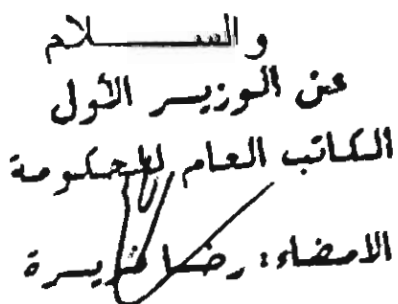 والسلام
عن الوزير الأول
الكاتب العام للحكومة
الامضاء: رضا قريرة